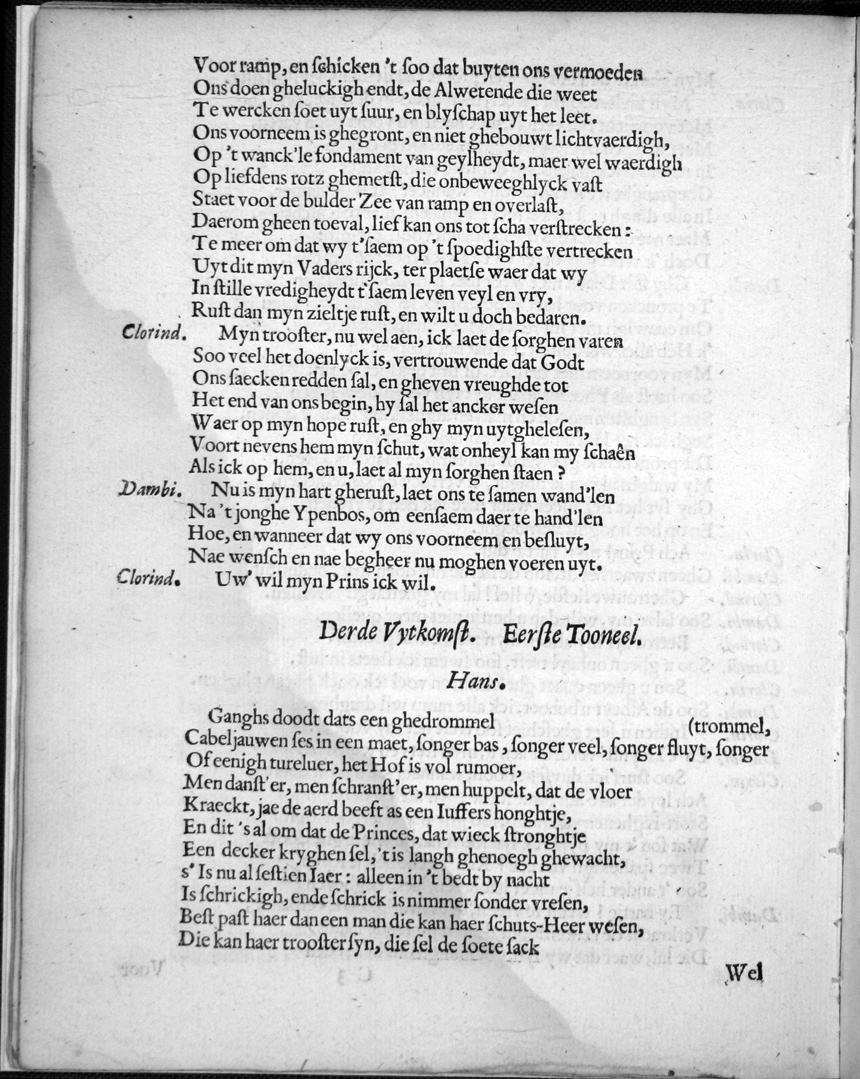 Voor ramp, en ſchicken 't ſoo dat buyten ons vermoeden
Ons doen gheluckigh endt, de Alwetende die weet
Te wercken ſoet uyt ſuur, en blyſchap uyt het leet.
Ons voorneem is ghegront, en niet ghebouwt lichtvaerdigh,
Op 't wanck'le fondament van geylheydt, maer wel waerdigh
Op liefdens rotz ghemetſt, die onbeweeghlyck vaſt
Staet voor de bulder Zee van ramp en overlaſt,
Daerom gheen toeval, lief kan ons tot ſcha verſtrecken:
Te meer om dat wy t'ſaem op 't ſpoedighſte vertrecken
Uyt dit myn Vaders rijck, ter plaetſe waer dat wy
In ſtille vredigheydt t'ſaem leven veyl en vry,
Ruſt dan myn zieltje ruſt, en wilt u doch bedaren.
Clorind. Myn trooſter, nu wel aen, ick laet de ſorghen varen
Soo veel het doenlyck is, vertrouwende dat Godt
Ons ſaecken redden ſal, en gheven vreughde tot
Het end van ons begin, hy ſal het ancker weſen
Waer op myn hope ruſt, en ghy myn uytgheleſen,
Voort nevens hem myn ſchut, wat onheyl kan my ſchaên
Als ick op hem, en u, laet al myn ſorghen ſtaen?
Dambi. Nu is myn hart gheruſt, laet ons te ſamen wand'len
Na 't jonghe Ypenbos, om eenſaem daer te hand'len
Hoe, en wanneer dat wy ons voorneem en beſluyt,
Nae wenſch en nae begheer nu moghen voeren uyt.
Clorind. Uw' wil myn Prins ick wil.
Derde Vytkomſt. Eerſte Tooneel.
Hans.
Ganghs doodt dats een ghedrommel (trommel,
Cabeljauwen ſes in een maet, ſonger bas, ſonger veel, ſonger fluyt, ſonger
Of eenigh tureluer, het Hof is vol rumoer,
Men danſt'er, men ſchranſt'er, men huppelt, dat de vloer
Kraeckt, jae de aerd beeft as een Iuffers honghtje,
En dit 's al om dat de Princes, dat wieck ſtronghtje
Een decker kryghen ſel, 't is langh ghenoegh ghewacht,
s' Is nu al ſeſtien Iaer: alleen in 't bedt by nacht
Is ſchrickigh, ende ſchrick is nimmer ſonder vreſen,
Beſt paſt haer dan een man die kan haer ſchuts-Heer weſen,
Die kan haer trooſter ſyn, die ſel de ſoete ſack
Wel